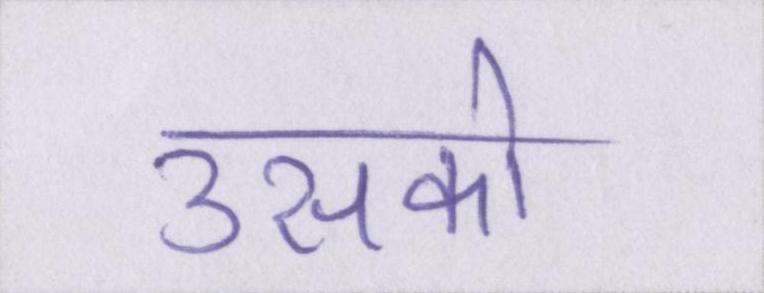 उसको